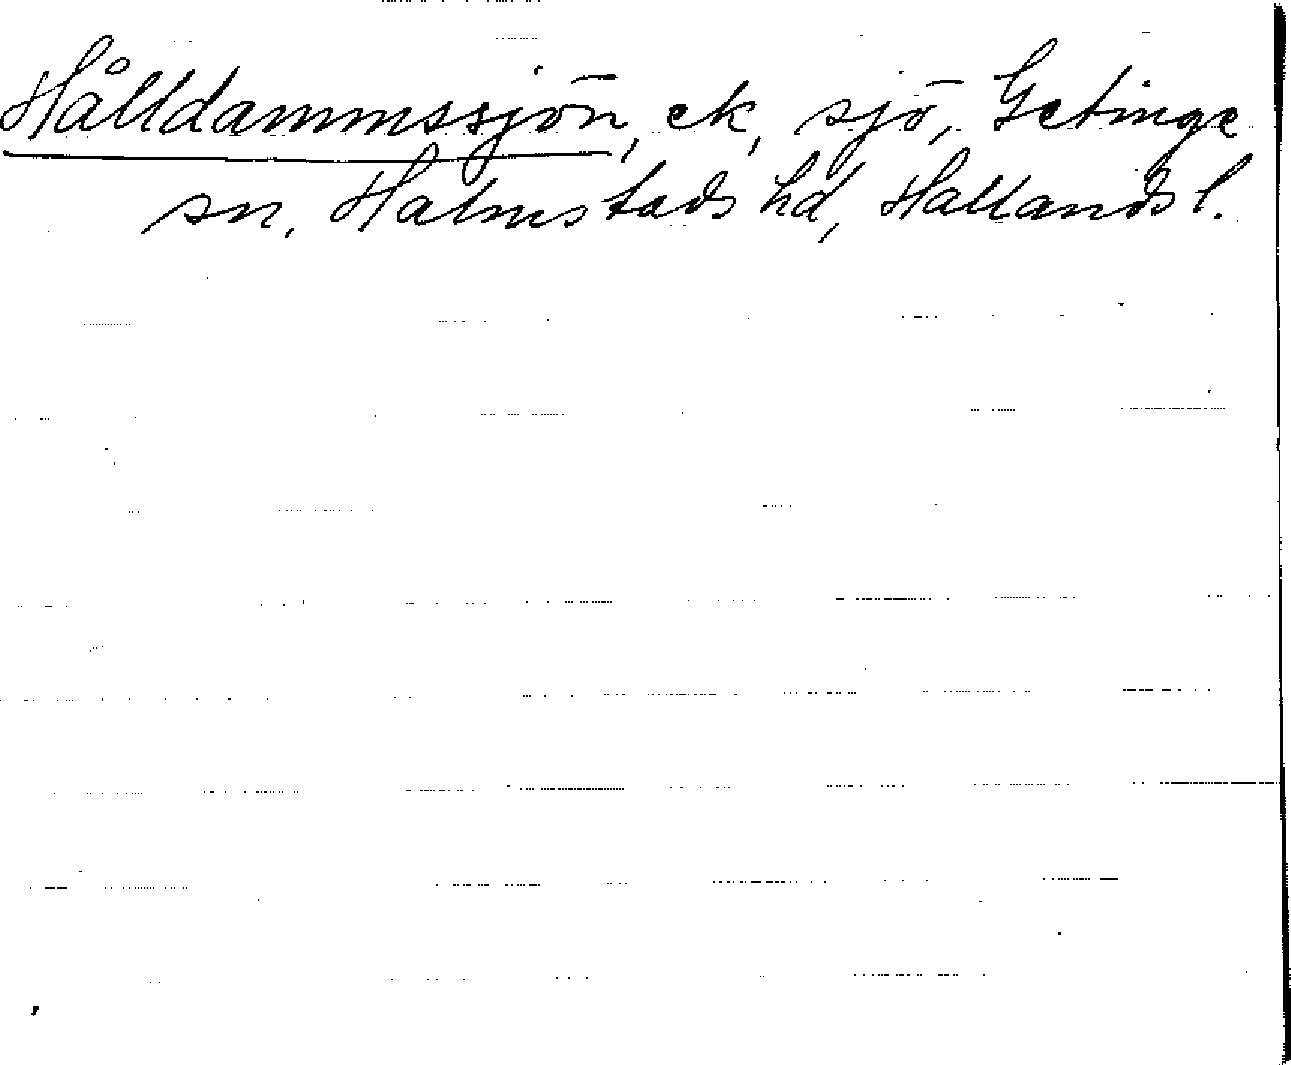 Hålldammssjön, ek, sjö, Getinge
sn, Halmstads hd, Hallands l.